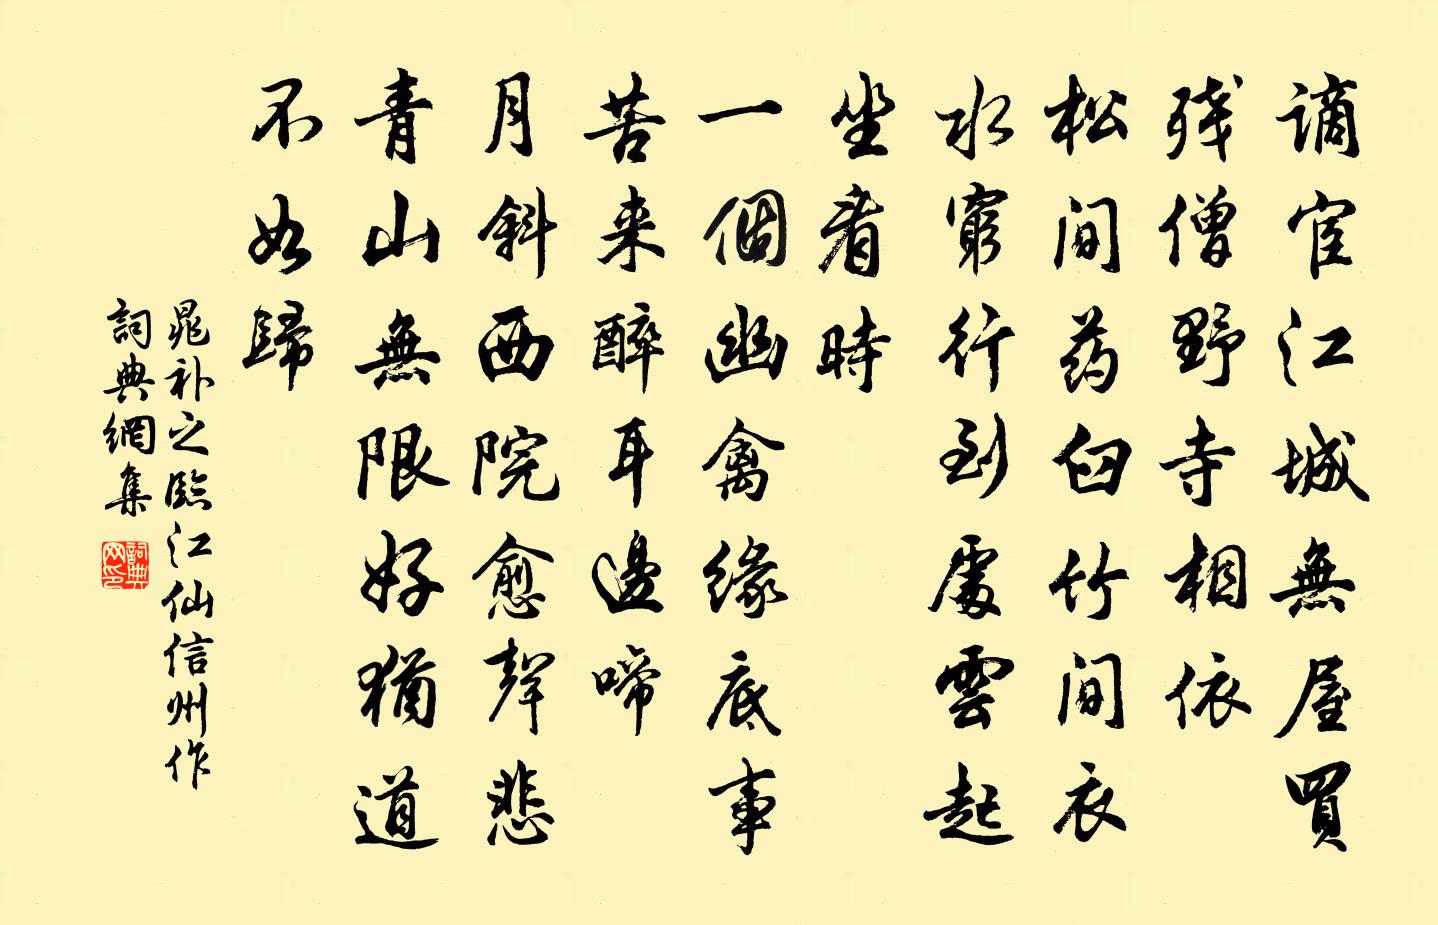 謫宦江城無屋買
残僧野寺相依
松間药臼竹間衣
水窮行到處雲起
坐看時
一個幽禽緣底事
苦来醉耳邊啼
月斜西院愈聲悲
青山無限好猶道
不如歸
晁补之臨江仙信州作
詞典網集
詞典网印